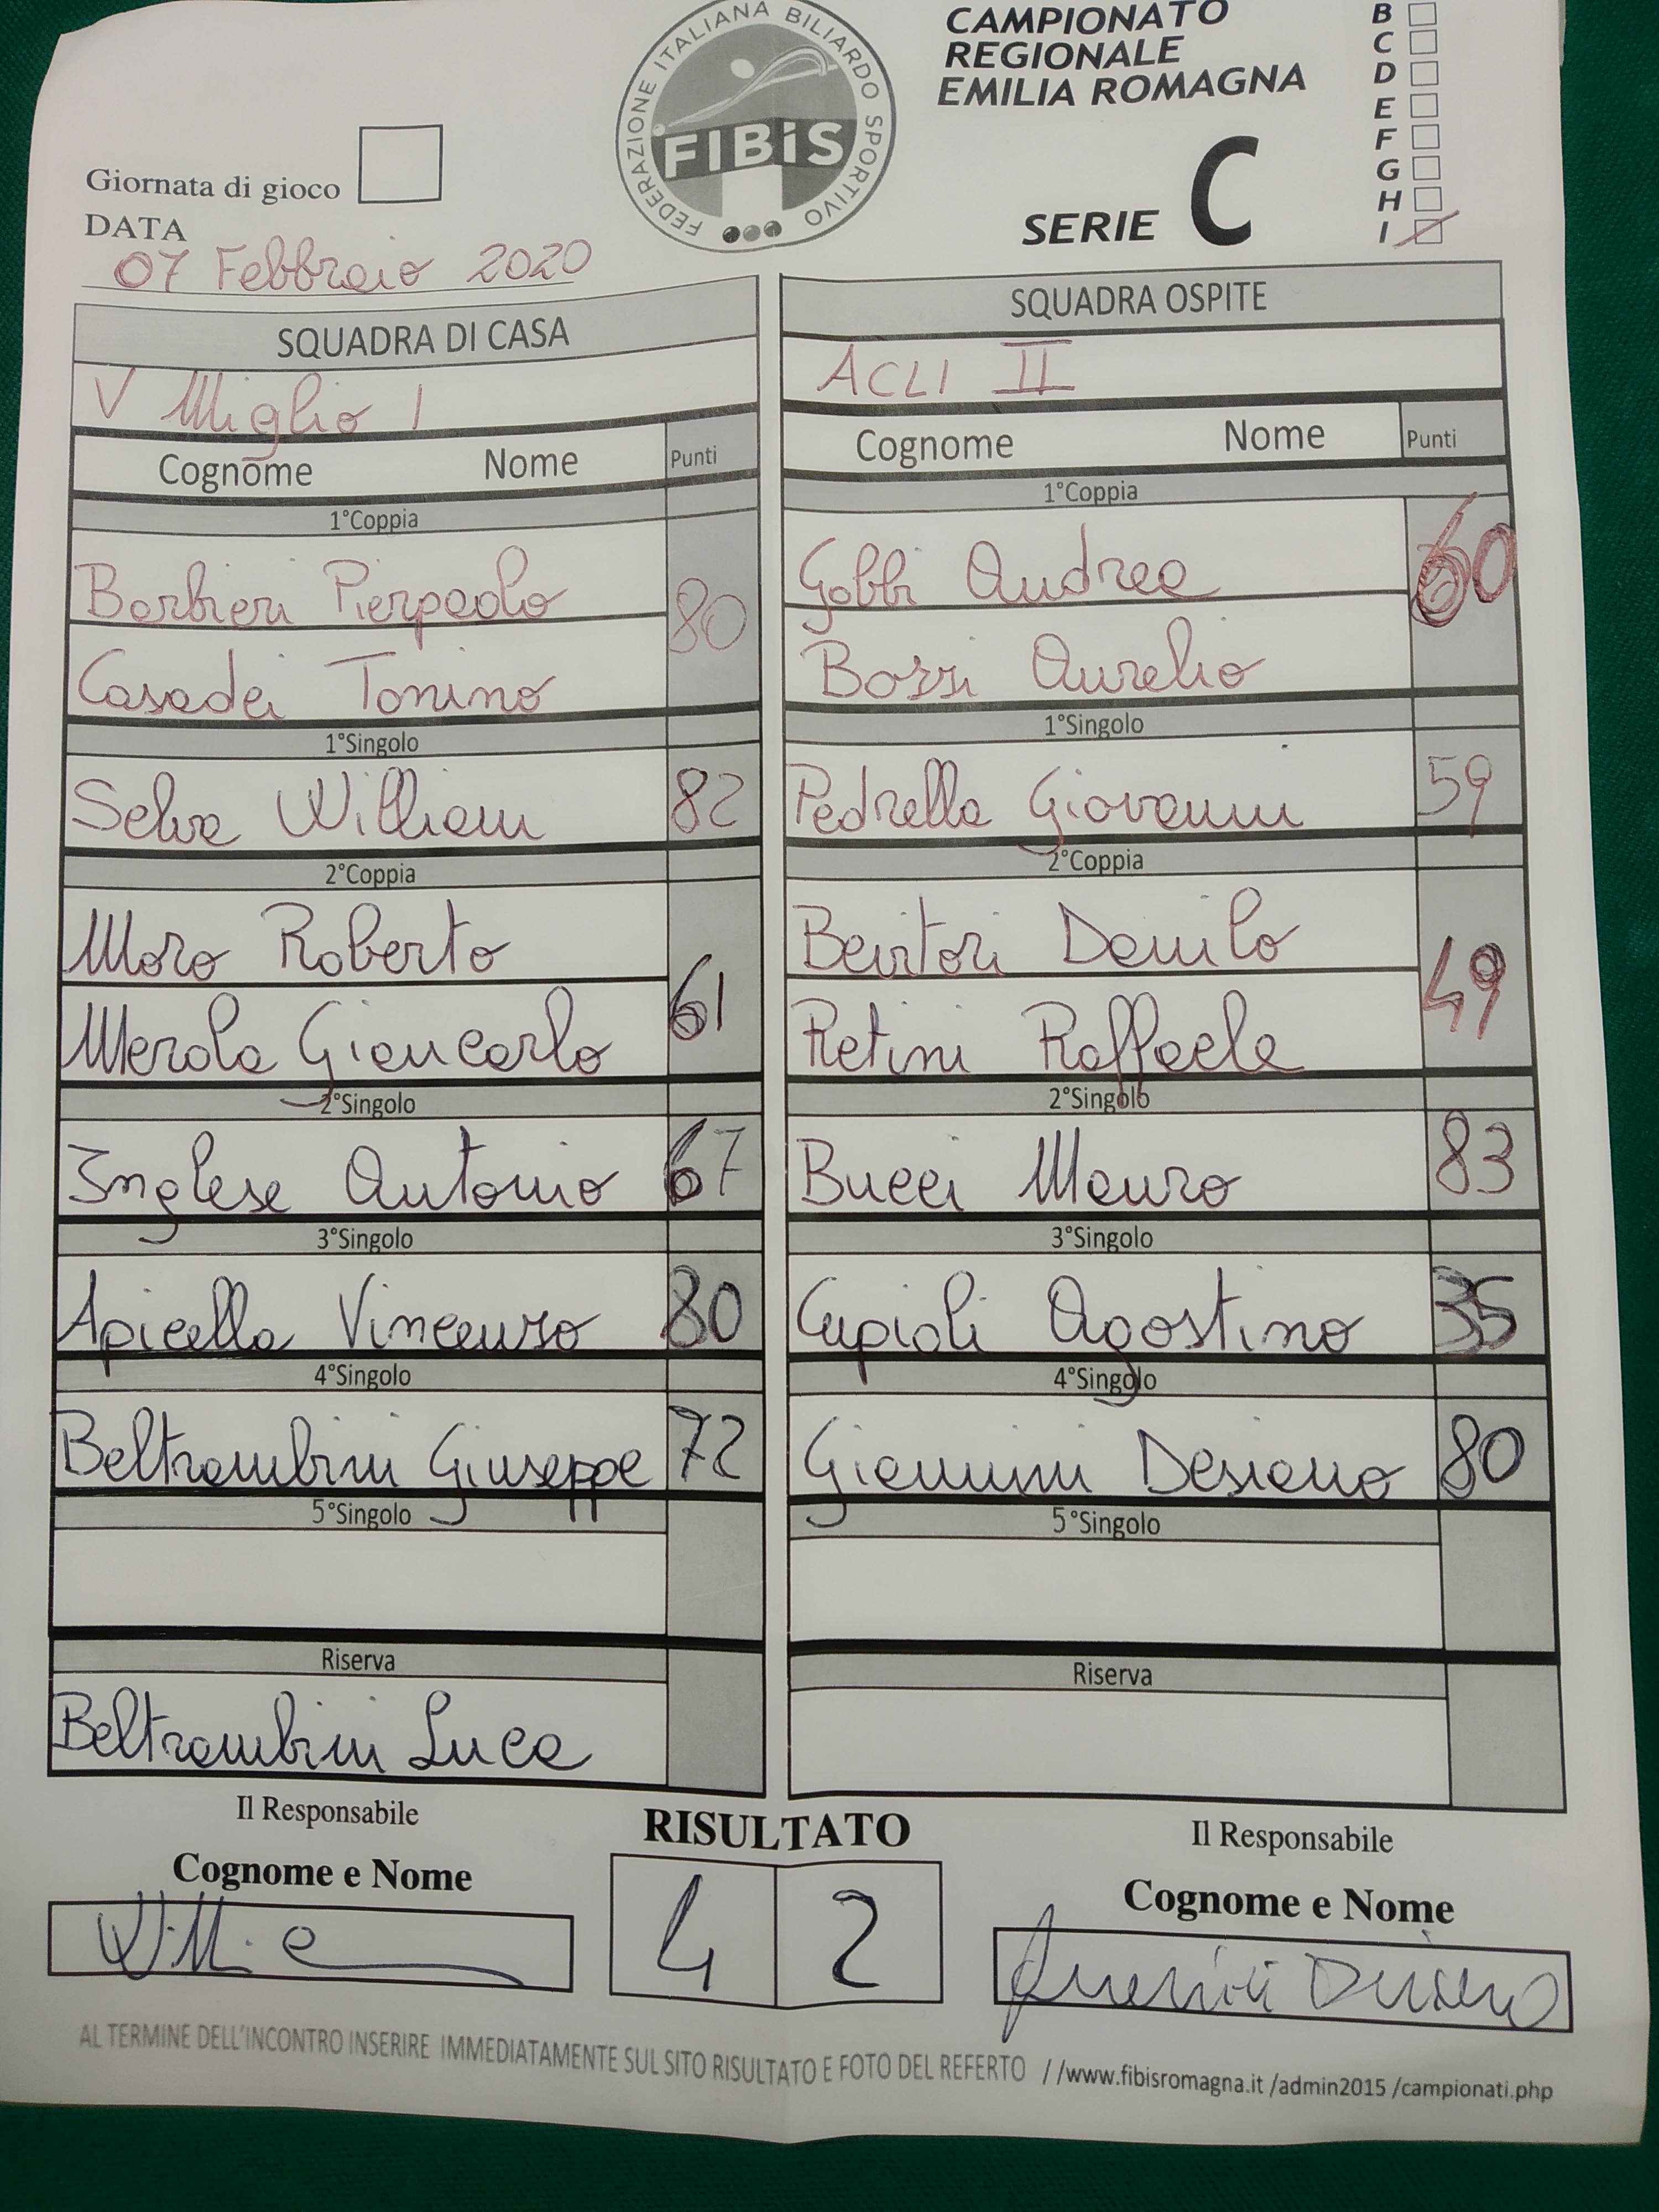 FEDERAZIONE ITALIANA BILIARDO SPORTIVO
FIBiS
CAMPIONATO
REGIONALE
EMILIA ROMAGNA
SERIE C
B
C
D
E
F
G
H
I
Giornata di gioco
DATA
07 Febbraio 2020
SQUADRA DI CASA
V Miglio 1
Cognome Nome Punti
1°Coppia
Barbieri Pierpaolo
80
Casadei Tonino
1°Singolo
Selva William 82
2°Coppia
Moro Roberto
61
Merola Giancarlo
2°Singolo
Inglese Antonio 67
3°Singolo
Apicella Vincenzo 80
4°Singolo
Beltrambini Giuseppe 72
5°Singolo
Riserva
Beltrambini Luca
SQUADRA OSPITE
ACLI II
Cognome Nome Punti
1°Coppia
Gobbi Andrea
60
Bozzi Aurelio
1°Singolo
Pedrella Giovanni 59
2°Coppia
Bentori Danilo
49
Retini Raffaele
2°Singolo
Bucci Mauro 83
3°Singolo
Capioli Agostino 35
4°Singolo
Giannini Desiano 80
5°Singolo
Riserva
Il Responsabile
Cognome e Nome
RISULTATO
4 2
Il Responsabile
Cognome e Nome
AL TERMINE DELL'INCONTRO INSERIRE IMMEDIATAMENTE SUL SITO RISULTATO E FOTO DEL REFERTO //www.fibisromagna.it /admin2015 /campionati.php